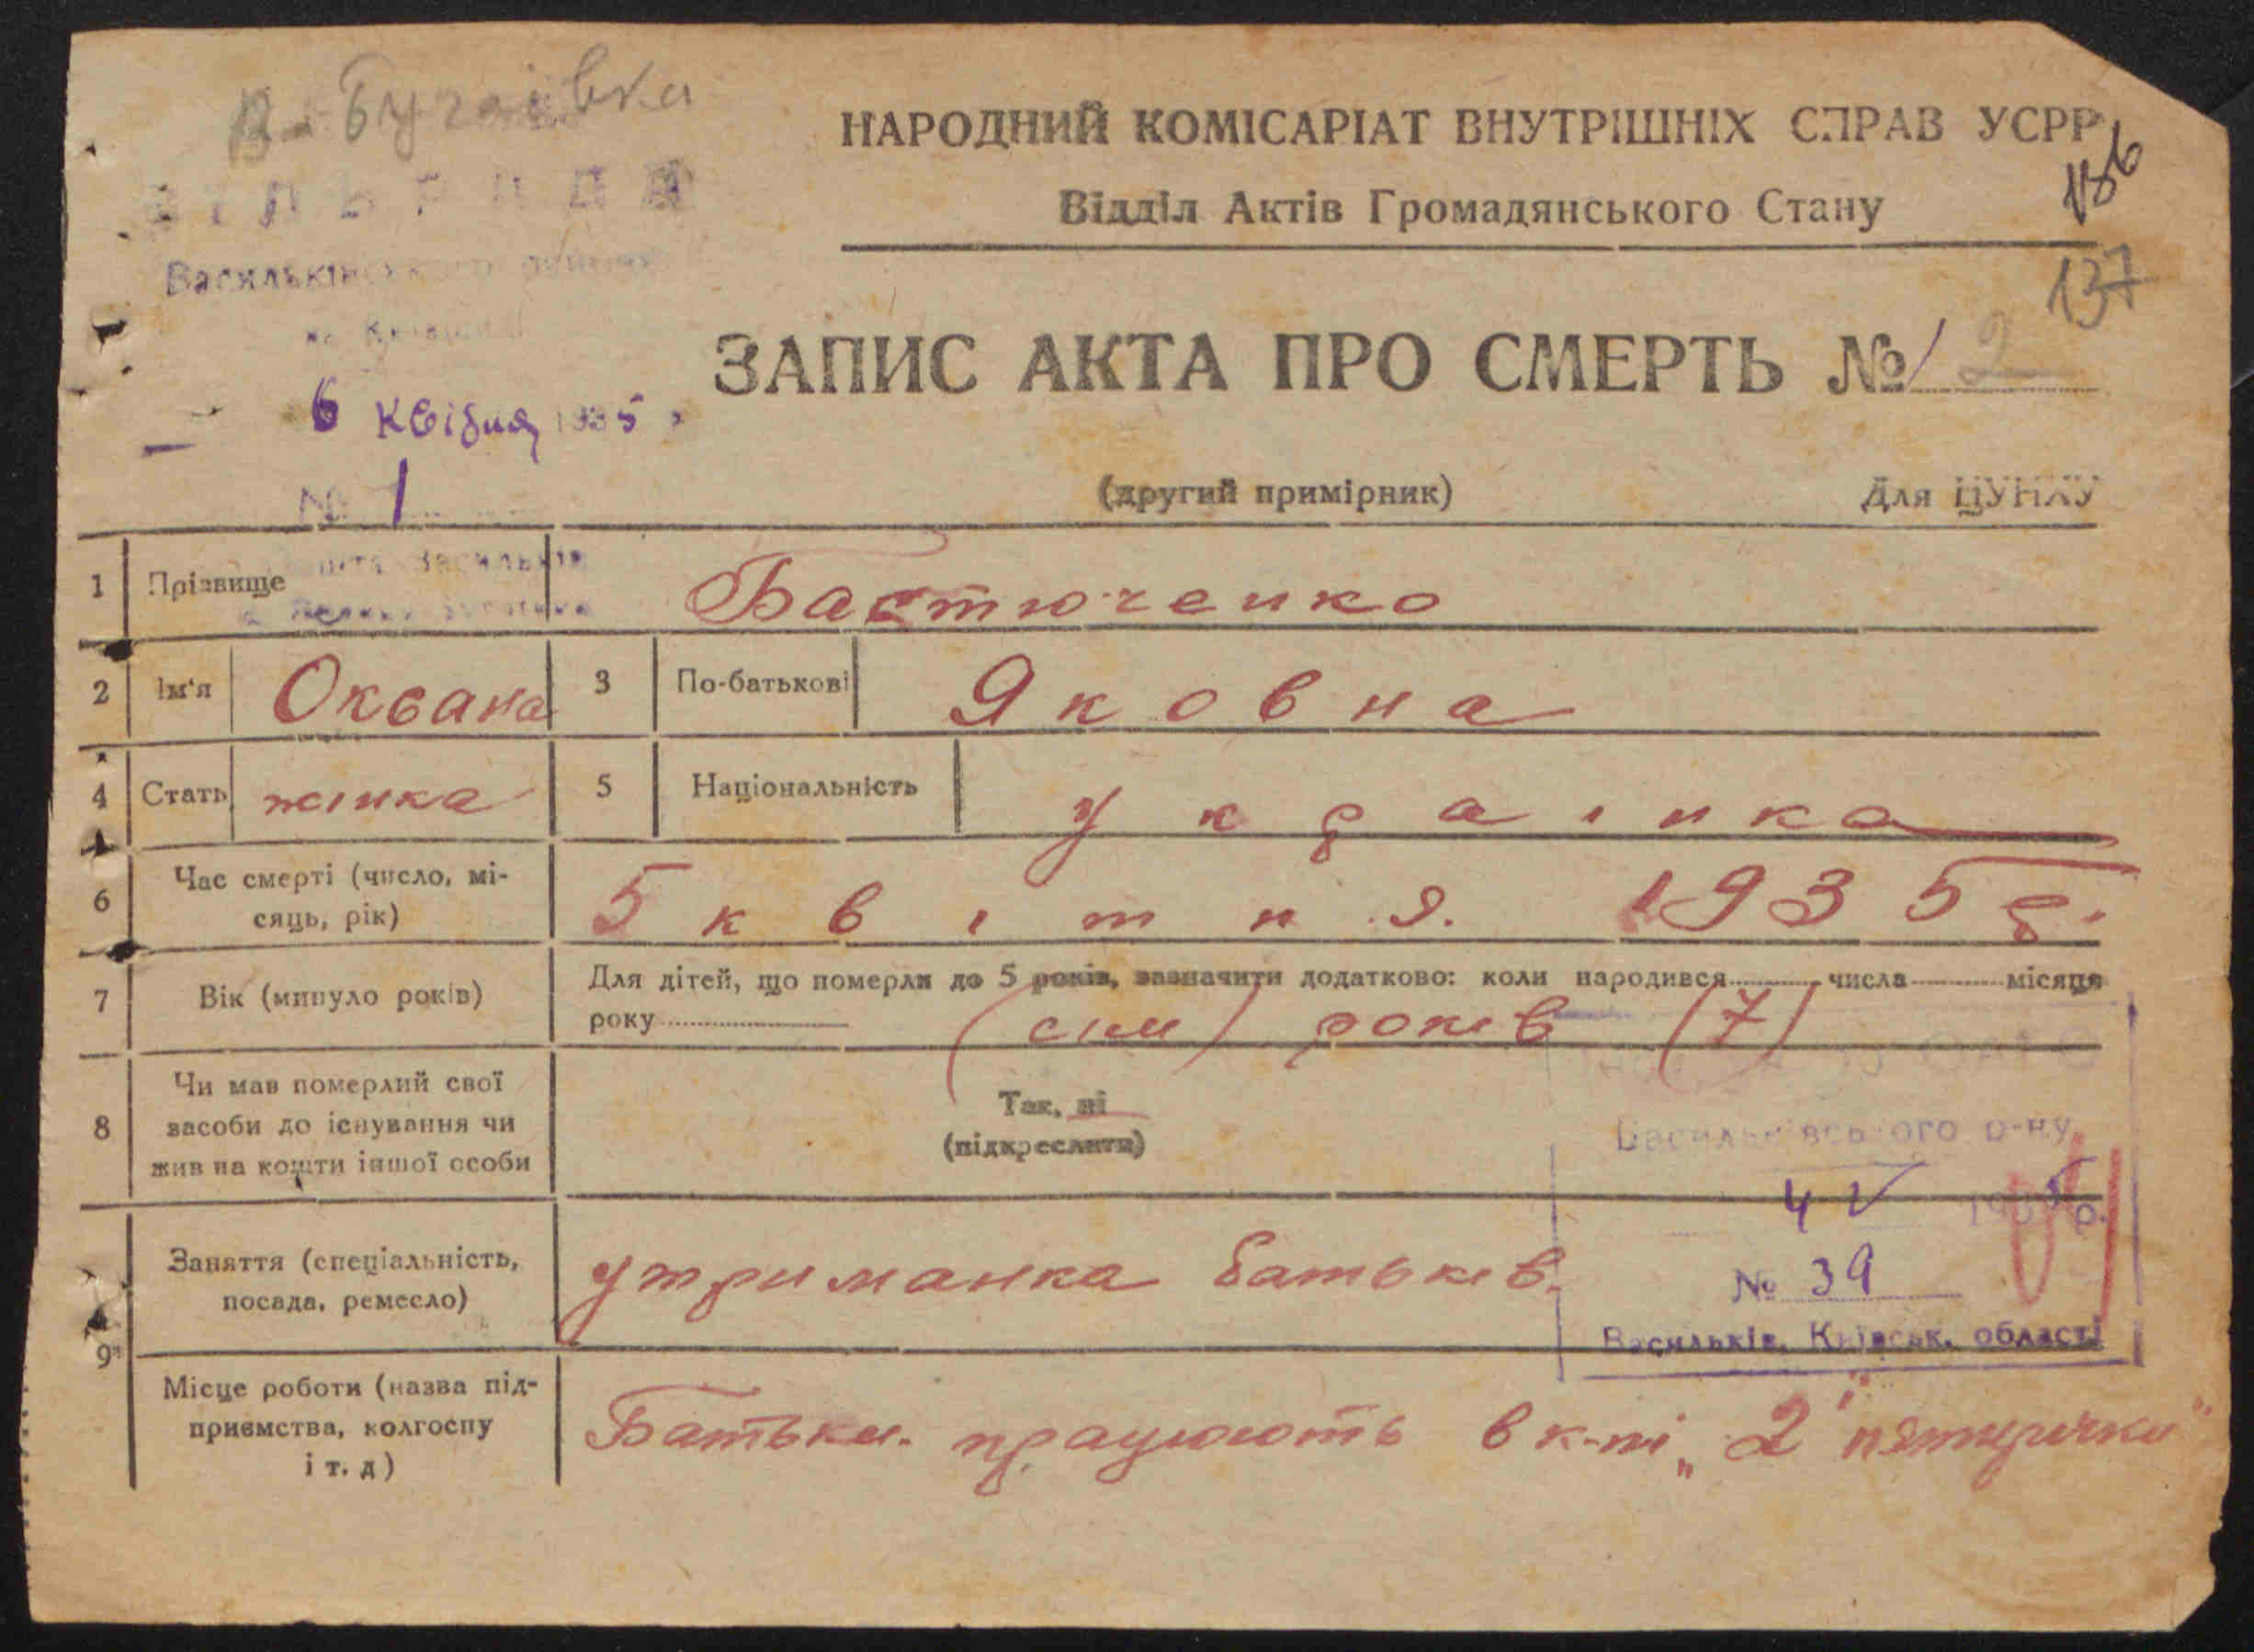 В-Бугаївка
НАРОДНИЙ КОМІСАРІАТ ВНУТРІШНІХ СПРАВ УСРР
136
Відділ Актів Громадянського Стану
137
СІЛЬРАДА
Васильківського району
на Київщині
ЗАПИС АКТА ПРО СМЕРТЬ № 2
6 квітня 1935 р.
№ 1
(другий примірник)
Для ЦУНХУ
1 Прізвище Бастюченко
2 Ім'я Оксана 3 По-батькові Яковна
4 Стать жінка 5 Національність українка
6 Час смерті (число, мі-
сяць, рік) 5 квітня 1935 р.
7 Вік (минуло років) Для дітей, що померли до 5 років, зазначити додатково: коли народився числа місяця
року (сім) років (7)
8 Чи мав померлий свої
засоби до існування чи
жив на кошти іншої особи
Так, ні
(підкреслити)
Васильківського р-ну
4 V 1935 р.
№ 39
Васильків, Київськ. області
9 Заняття (спеціальність,
посада, ремесло) утриманка батьків.
Місце роботи (назва під-
приємства, колгоспу
і т. д) Батьки працюють в к-пі „2 пятирічки"